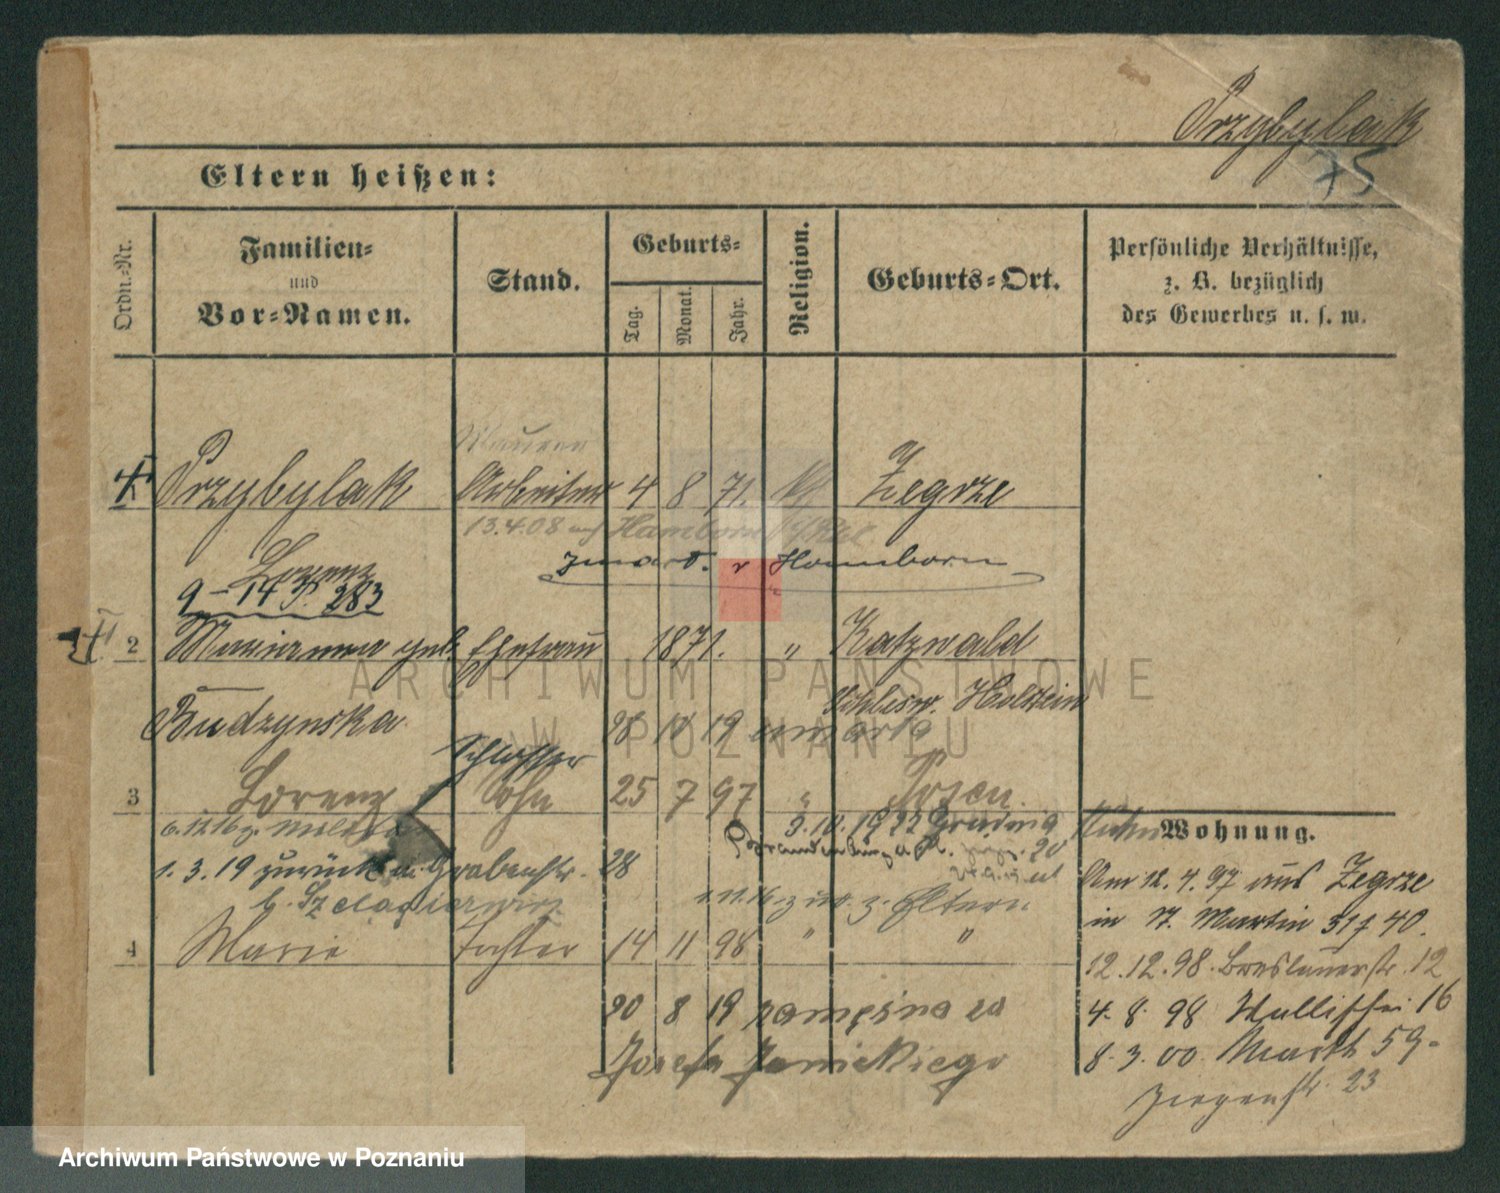 Przybylak
75
Eltern heißen:
Ordn.-Nr.
Familien-
und
Vor-Namen.
Stand.
Geburts-
Tag.
Monat.
Jahr.
Religion.
Geburts-Ort.
Persönliche Verhältnisse,
z. B. bezüglich
des Gewerbes u. s. w.
Maurer
Przybylak Arbeiter 4 8 71. Zegrze
13.4.08 auf Hamborn
Lorenz
zur v. Hamborn
9-14 P. 283
2 Marianna geb. Ehefrau 1871. " Katzwald
Schlesw. Holstein
Budzynska 28 10 19 umarła
Schlosser
3 Lorenz Sohn 25 7 97 " Posen.
6.12.16 z. Militär
9.10.1922
Brandenburg
1.3.19 zurück Grabenstr. 28
b. 1.11.16 zur. z. Eltern
4 Marie Tochter 14 11 98 " "
20 8 19 za
Józefa Janickiego
Wohnung.
Am 12.4.97 aus Zegrze
in St. Martin 31/40.
12.12.98. Breslauerstr. 12
4.8.98 Wallischei 16
8.3.00 Markt 59.
Ziegenstr. 23
ARCHIWUM PAŃSTWOWE
W POZNANIU
Archiwum Państwowe w Poznaniu